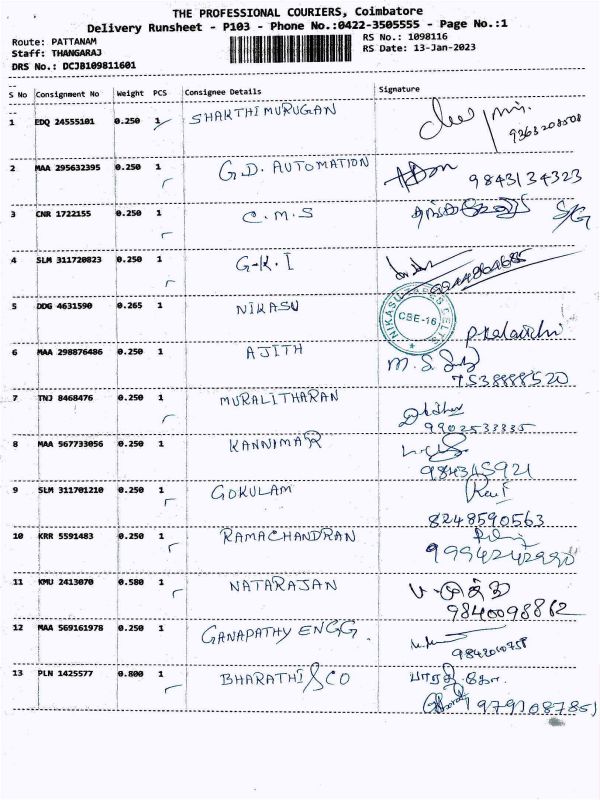 THE PROFESSIONAL COURIERS, Coimbatore
Delivery Runsheet - P103 - Phone No.:0422-3505555 - Page No.:1
Route: PATTANAM
Staff: THANGARAJ
DRS No.: DCJB109811601
RS No.: 1098116
RS Date: 13-Jan-2023
S No Consignment No Weight PCS Consignee Details Signature
1 EDQ 24555101 0.250 1 SHAKTHIMURUGAN
2 MAA 295632395 0.250 1 G.D. AUTOMATION 9843134323
3 CNR 1722155 0.250 1 C.M.S S/G
4 SLM 311720823 0.250 1 G.K.I
5 DDG 4631590 0.265 1 NIKASU CBE-16
6 MAA 298876486 0.250 1 AJITH 7538888520
7 TNJ 8468476 0.250 1 MURALITHARAN
8 MAA 567733056 0.250 1 KANNIMAR
9 SLM 311701210 0.250 1 GOKULAM 8248590563
10 KRR 5591483 0.250 1 RAMACHANDRAN
11 KMU 2413070 0.580 1 NATARAJAN 9840098862
12 MAA 569161978 0.250 1 GANAPATHY ENGG.
13 PLN 1425577 0.800 1 BHARATHI & CO